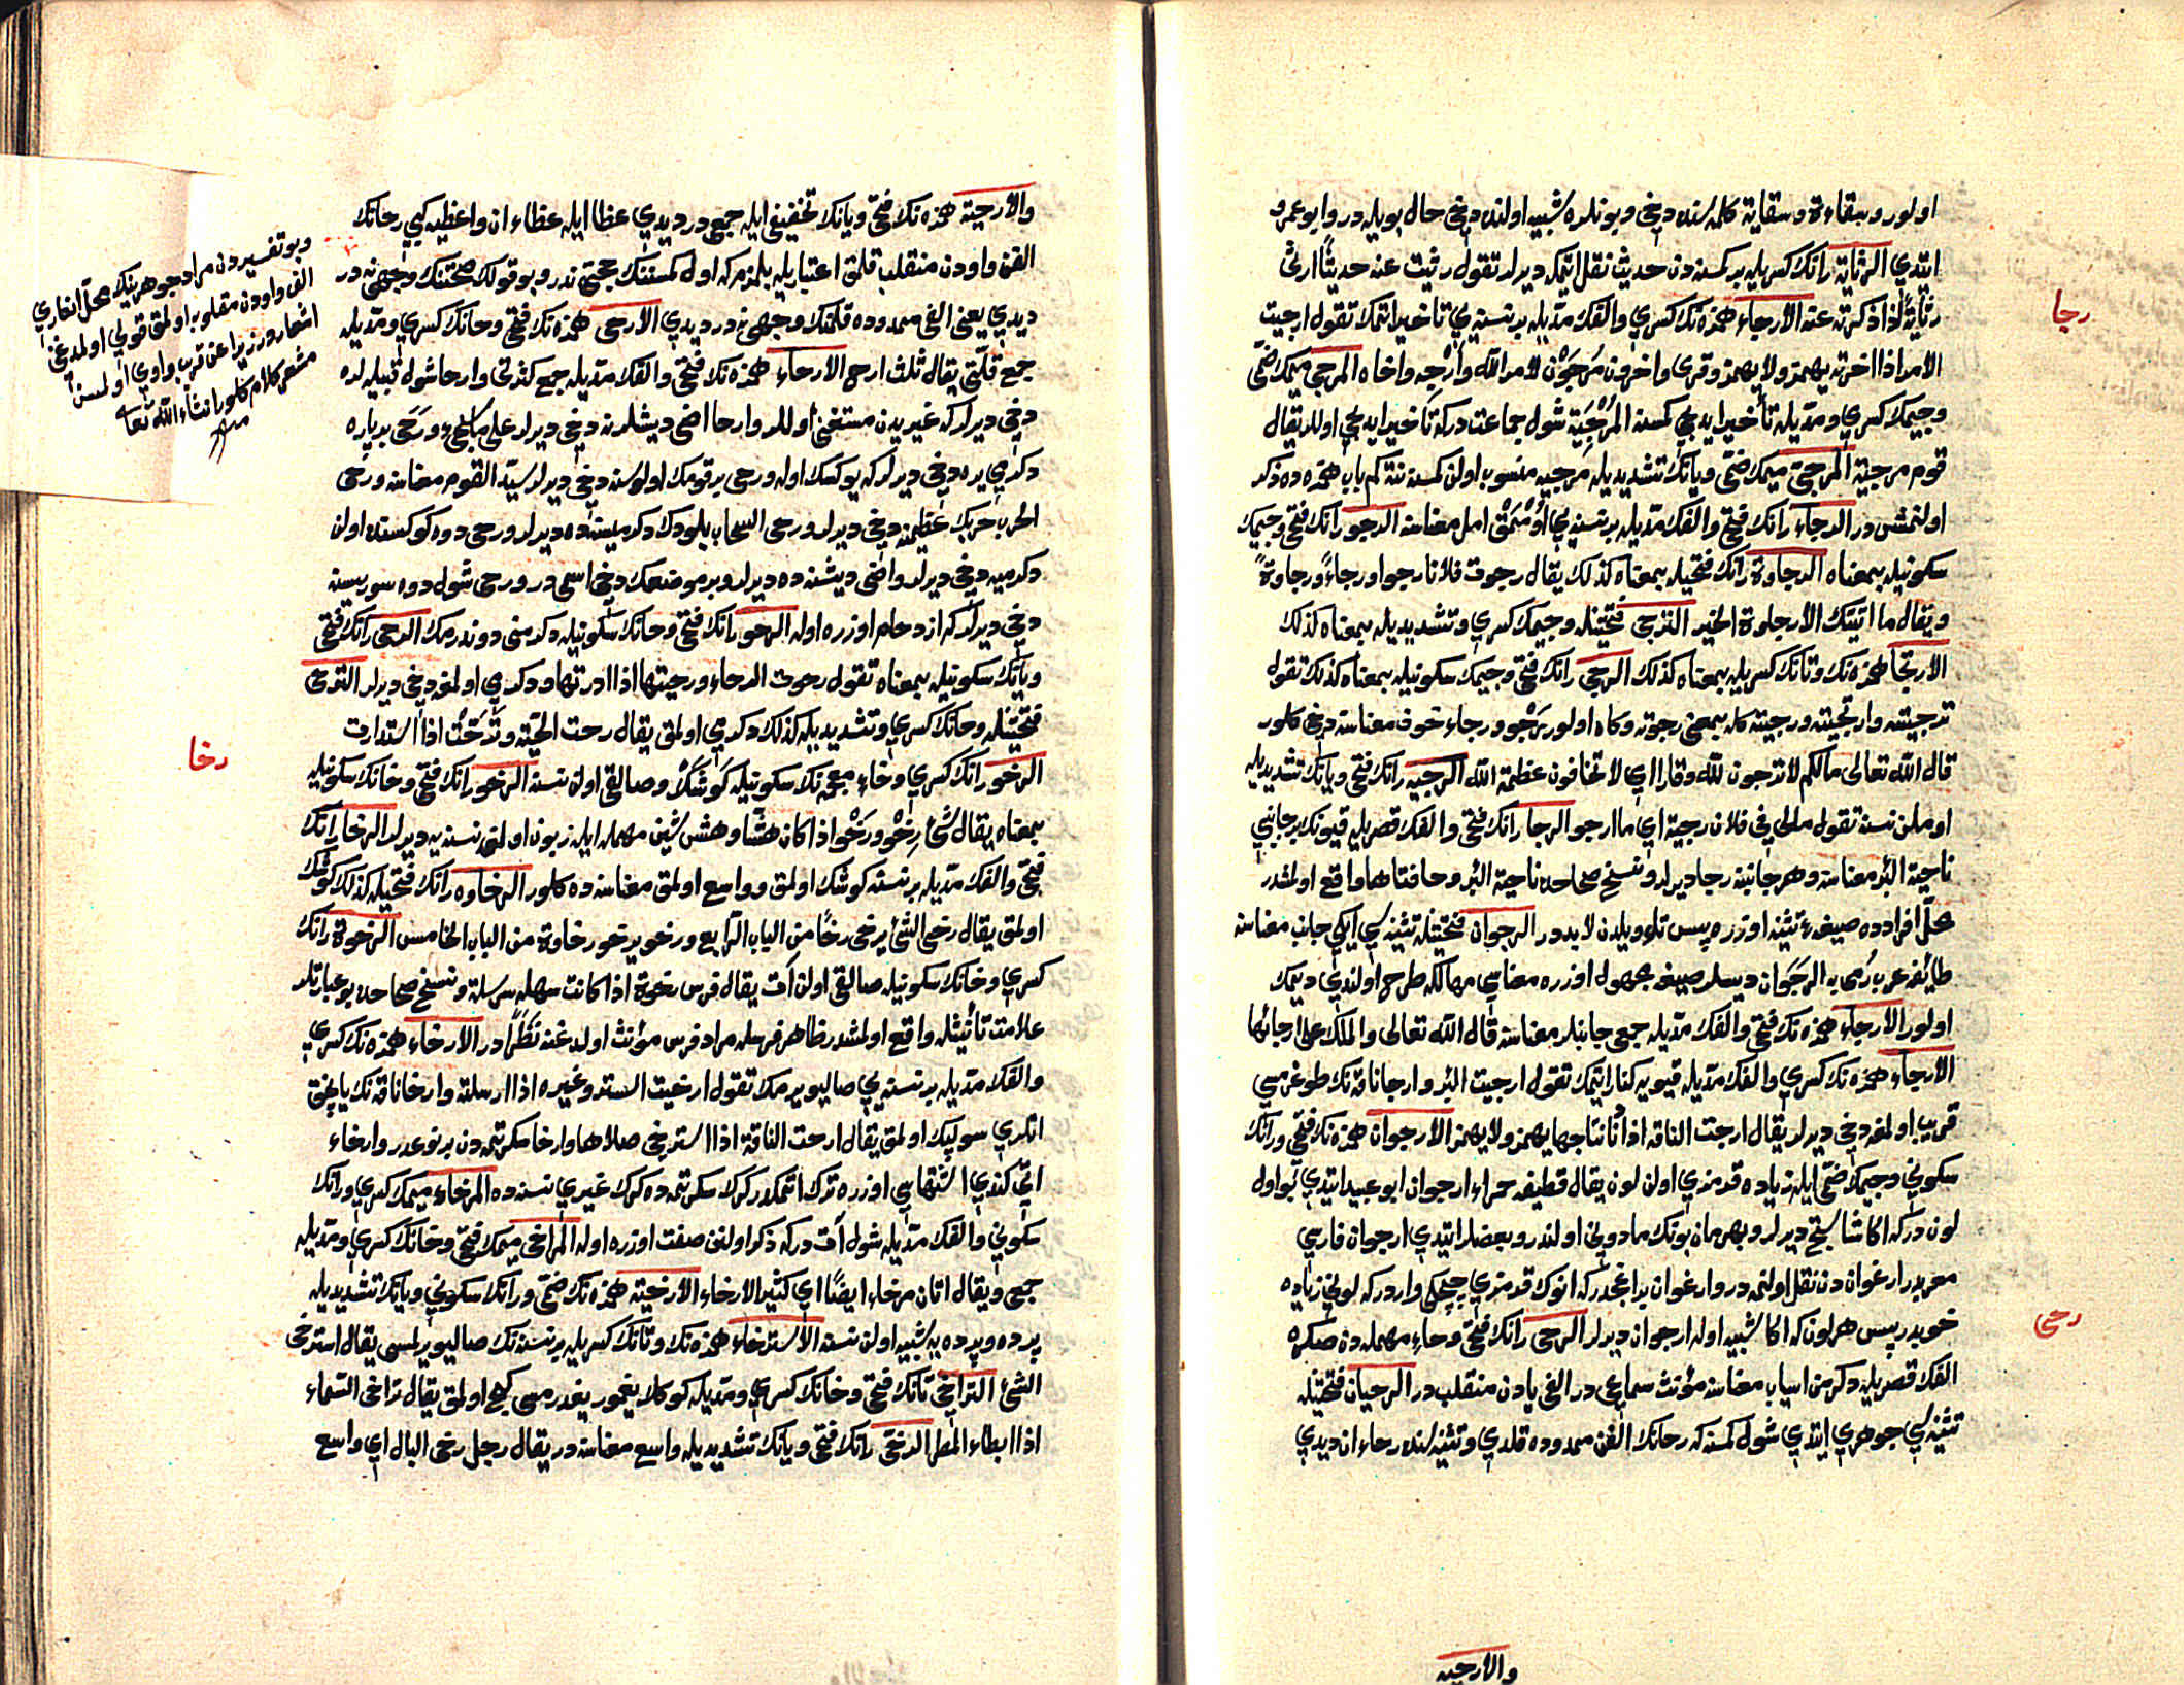 اولور وسقاءة وسقاية كلمه‌سنده دخی وبونلره شبیه اولنده دخی حال بویله‌در وابو عمرو
ایتدی الرثایة رانك كسریله بر كمسنه‌دن حدیث نقل ایتمكه دیرلر تقول رثیت عنه حدیثا ارثی
رثایة اذا ذكرته عنه الارجاء همزه‌نك كسری والفك مدیله بر نسنه‌یی تاخیر اتمك تقول ارجیت
رجا
الامر اذا اخرته یهمز ولا یهمز وقری واخرون مرجون لامر الله وارجه واخاه المرجی میمك ضمی
وجیمك كسری ومدیله تأخیر ایدیجی كمسنه المرجیة شول جماعتدركه تأخیر ایدیجی اولالر یقال
قوم مرجیة المرجی میمك ضمی ویانك تشدیدیله مرجیه منسوب اولن كمسنه نته‌كم باب همزه‌ده ذكر
اولنمش‌در الرجاء رانك فتحی والفك مدیله بر نسنه‌یی اومق امل معناسنه الرجو رانك فتحی وجیمك
سكونیله بمعناه الرجاوة رانك فتحیله بمعناه كذلك یقال رجوت فلانا رجوا ورجاء ورجاوة
ویقال ما اتیتك الا رجاوة الخیر الترجی فتحتینله وجیمك كسری وتشدیدیله بمعناه كذلك
الارتجا همزه‌نك وتانك كسریله بمعناه كذلك الرجی رانك فتحی وجیمك سكونیله بمعناه كذلك تقول
ترجیته وارتجیته ورجیته كله بمعنی رجوته وكاه اولور رجو ورجاء خوف معناسنه دخی كلور
قال الله تعالی مالكم لا ترجون لله وقارا ای لا تخافون عظمة الله الرجیه رانك فتحی ویانك تشدیدیله
اوملن نسنه تقول مالی فی فلان رجیة ای ما ارجو الرجا رانك فتحی والفك قصریله قیونك بر جانبی
ناحیة البئر معناسنه وهر جانبنه رجا دیرلر ونسخ صحاحده ناحیة البئر وحافتاها واقع اولمشدر
محل افرادده صیغهٔ تثنیه اوزره پس تاویلدن لابددر الرجوان فتحتینله تثنیه‌سی ایكی جانب معناسنه
طائفه عرب رمی به الرجوان دیسلر صیغه مجهول اوزره معناسی مهالكه طرح اولندی دیمك
اولور الارجاء همزه‌نك فتحی والفك مدیله جمعی جانبلر معناسنه قال الله تعالی والملك علی ارجائها
الارجاء همزه‌نك كسری والفك مدیله قیویه كنار ایتمك تقول ارجیت البئر وارجا ناقه‌نك طوغرمسی
قریب اولمغه دخی دیرلر یقال ارجت الناقه اذا دنا نتاجها یهمز ولا یهمز الارجوان همزه‌نك فتحی ورانك
سكونی وجیمك ضمی ایله زیاده قرمزی اولن لون یقال قطیفه حمراء ارجوان ابو عبید ایتدی بو اول
لوندركه اكا نشاستج دیرلر وبهرمان بونك مادونی اولندر وبعضلر ایتدی ارجوان فارسی
معربدر ارغوان‌دن نقل اولنمه‌در وارغوان بر اغجدركه انوك قرمزی چیچكی واردركه لونی زیاده
خوبدر پس هر لون كه اكا شبیه اوله ارجوان دیرلر الرحی رانك فتحی وحاء مهمله‌ده صكره
رحی
الفك قصریله دكرمن اسیاب معناسنه مؤنث سماعی‌در الفی یادن منقلب‌در الرحیان فتحتینله
تثنیه‌سی جوهری ایتدی شول كمسنه كه رحانك الفن ممدوده قلدی وتثنیه‌سنده رحاءان دیدی
والارحیه
والارحیة همزه‌نك فتحی ویانك تخفیفی ایله جمعی‌در دیدی عظا ایله عظاءان واعظیه كبی رحانك
الفن واودن منقلب قلمق اعتباریله بلنمزكه اول كمسنه‌نك حجتی ندر وبو قولك صحتنك وجهی نه‌در
دیدی یعنی الفی ممدوده قلمغك وجهی نه‌در دیدی الارحی همزه‌نك فتحی وحانك كسری ومدیله
جمع قلتی یقال ثلث ارح الارحاء همزه‌نك فتحی والفك مدیله جمع كثرتی وارحا شول قبیله‌لره
دخی دیرلر كه غیریدن مستغنی اولالر وارحا اضی دیشلرنه دخی دیرلر ورحی بر پاره
دكرمی یره دخی دیرلر كه یوكسك اوله ورحی بر قومك اولوسنه دخی دیرلر سید القوم معناسنه ورحی
الحرب حربك عظیمنه دخی دیرلر ورحی السحاب بلودك دكرمیسنه‌ده دیرلر ورحی دوه كوكسنده اولن
دكرمیه دخی دیرلر واضی دیشنه‌ده دیرلر وبر موضعك دخی اسمی‌در ورحی شول دوه سوریسنه
دخی دیرلر كه ازدحام اوزره اوله الرحو رانك فتحی وحانك سكونیله دكرمنی دوندرمك الرحی رانك فتحی
ویانك سكونیله بمعناه تقول رحوت الرحاء ورحیتها اذا ادرتها ودكرمی اولمغه دخی دیرلر الترحی
فتحتینله وحانك كسری وتشدیدیله كذلك دكرمی اولمق یقال رحت الحیة وترحت اذا استدارت
الرخو رانك كسری وخاء معجمه‌نك سكونیله كوشك وصالقی اولن نسنه الرخو رانك فتحی وخانك سكونیله
رخا
بمعناه یقال شئ رخو ورخو اذا كان هشا وهش شین مهمله ایله زبون اولن نسنه‌یه دیرلر الرخا رانك
فتحی والفك مدیله بر نسنه كوشك اولمق وواسع اولمق معناسنه‌ده كلور الرخاوه رانك فتحیله كذلك كوشك
اولمق یقال رخی الشئ یرخی رخا من الباب الرابع ورخو یرخو رخاوة من الباب الخامس الرخوة رانك
كسری وخانك سكونیله صالقی اولن آت یقال فرس رخوة اذا كانت سهله سرسلة ونسخ صحاحده بو عبارتلر
علامت تأنیثله واقع اولمشدر ظاهر فرسله مراد فرس مؤنث اولدغنه نظرا در الارخاء همزه‌نك كسری
والفك مدیله بر نسنه‌یی صالیویرمك تقول ارخیت الستر وغیره اذا ارسلته وارخا ناقه‌نك یاپنق
اتلری سولپك اولمق یقال ارخت الناقة اذا استرخی صلاها وارخا سكرتمه‌دن بر نوعدر وارخاء
اتی كندی اشتهاسی اوزره ترك اتمكدر كرك سكرتمه‌ده كرك غیری نسنه‌ده المرخاء میمك كسری ورانك
سكونی والفك مدیله شول آت‌دركه ذكر اولنن صفت اوزره اوله المراخی میمك فتحی وخانك كسری ومدیله
جمعی ویقال اتان مرخاء ایضا ای كثیر الارخاء الارخیة همزه‌نك ضمی ورانك سكونی ویانك تشدیدیله
پرده وپرده‌یه شبیه اولن نسنه الاسترخاء همزه‌نك وتانك كسریله بر نسنه‌نك صالیویرلمسی یقال استرخی
الشئ التراخی تانك فتحی وخانك كسری ومدیله كوكلر یغمور یغدرمسی كیچ اولمق یقال تراخی السماء
اذا ابطاء المطر الرخی رانك فتحی ویانك تشدیدیله واسع معناسنه‌در یقال رجل رخی البال ای واسع
وبو تفسیردن مراد جوهرینك
الف واودن مقلوب اولمق قولی اولمدغنی
اشعاردر زیرا عن قریب واوی اولمسنه
مشعر كلام كلور انشاء الله تعا